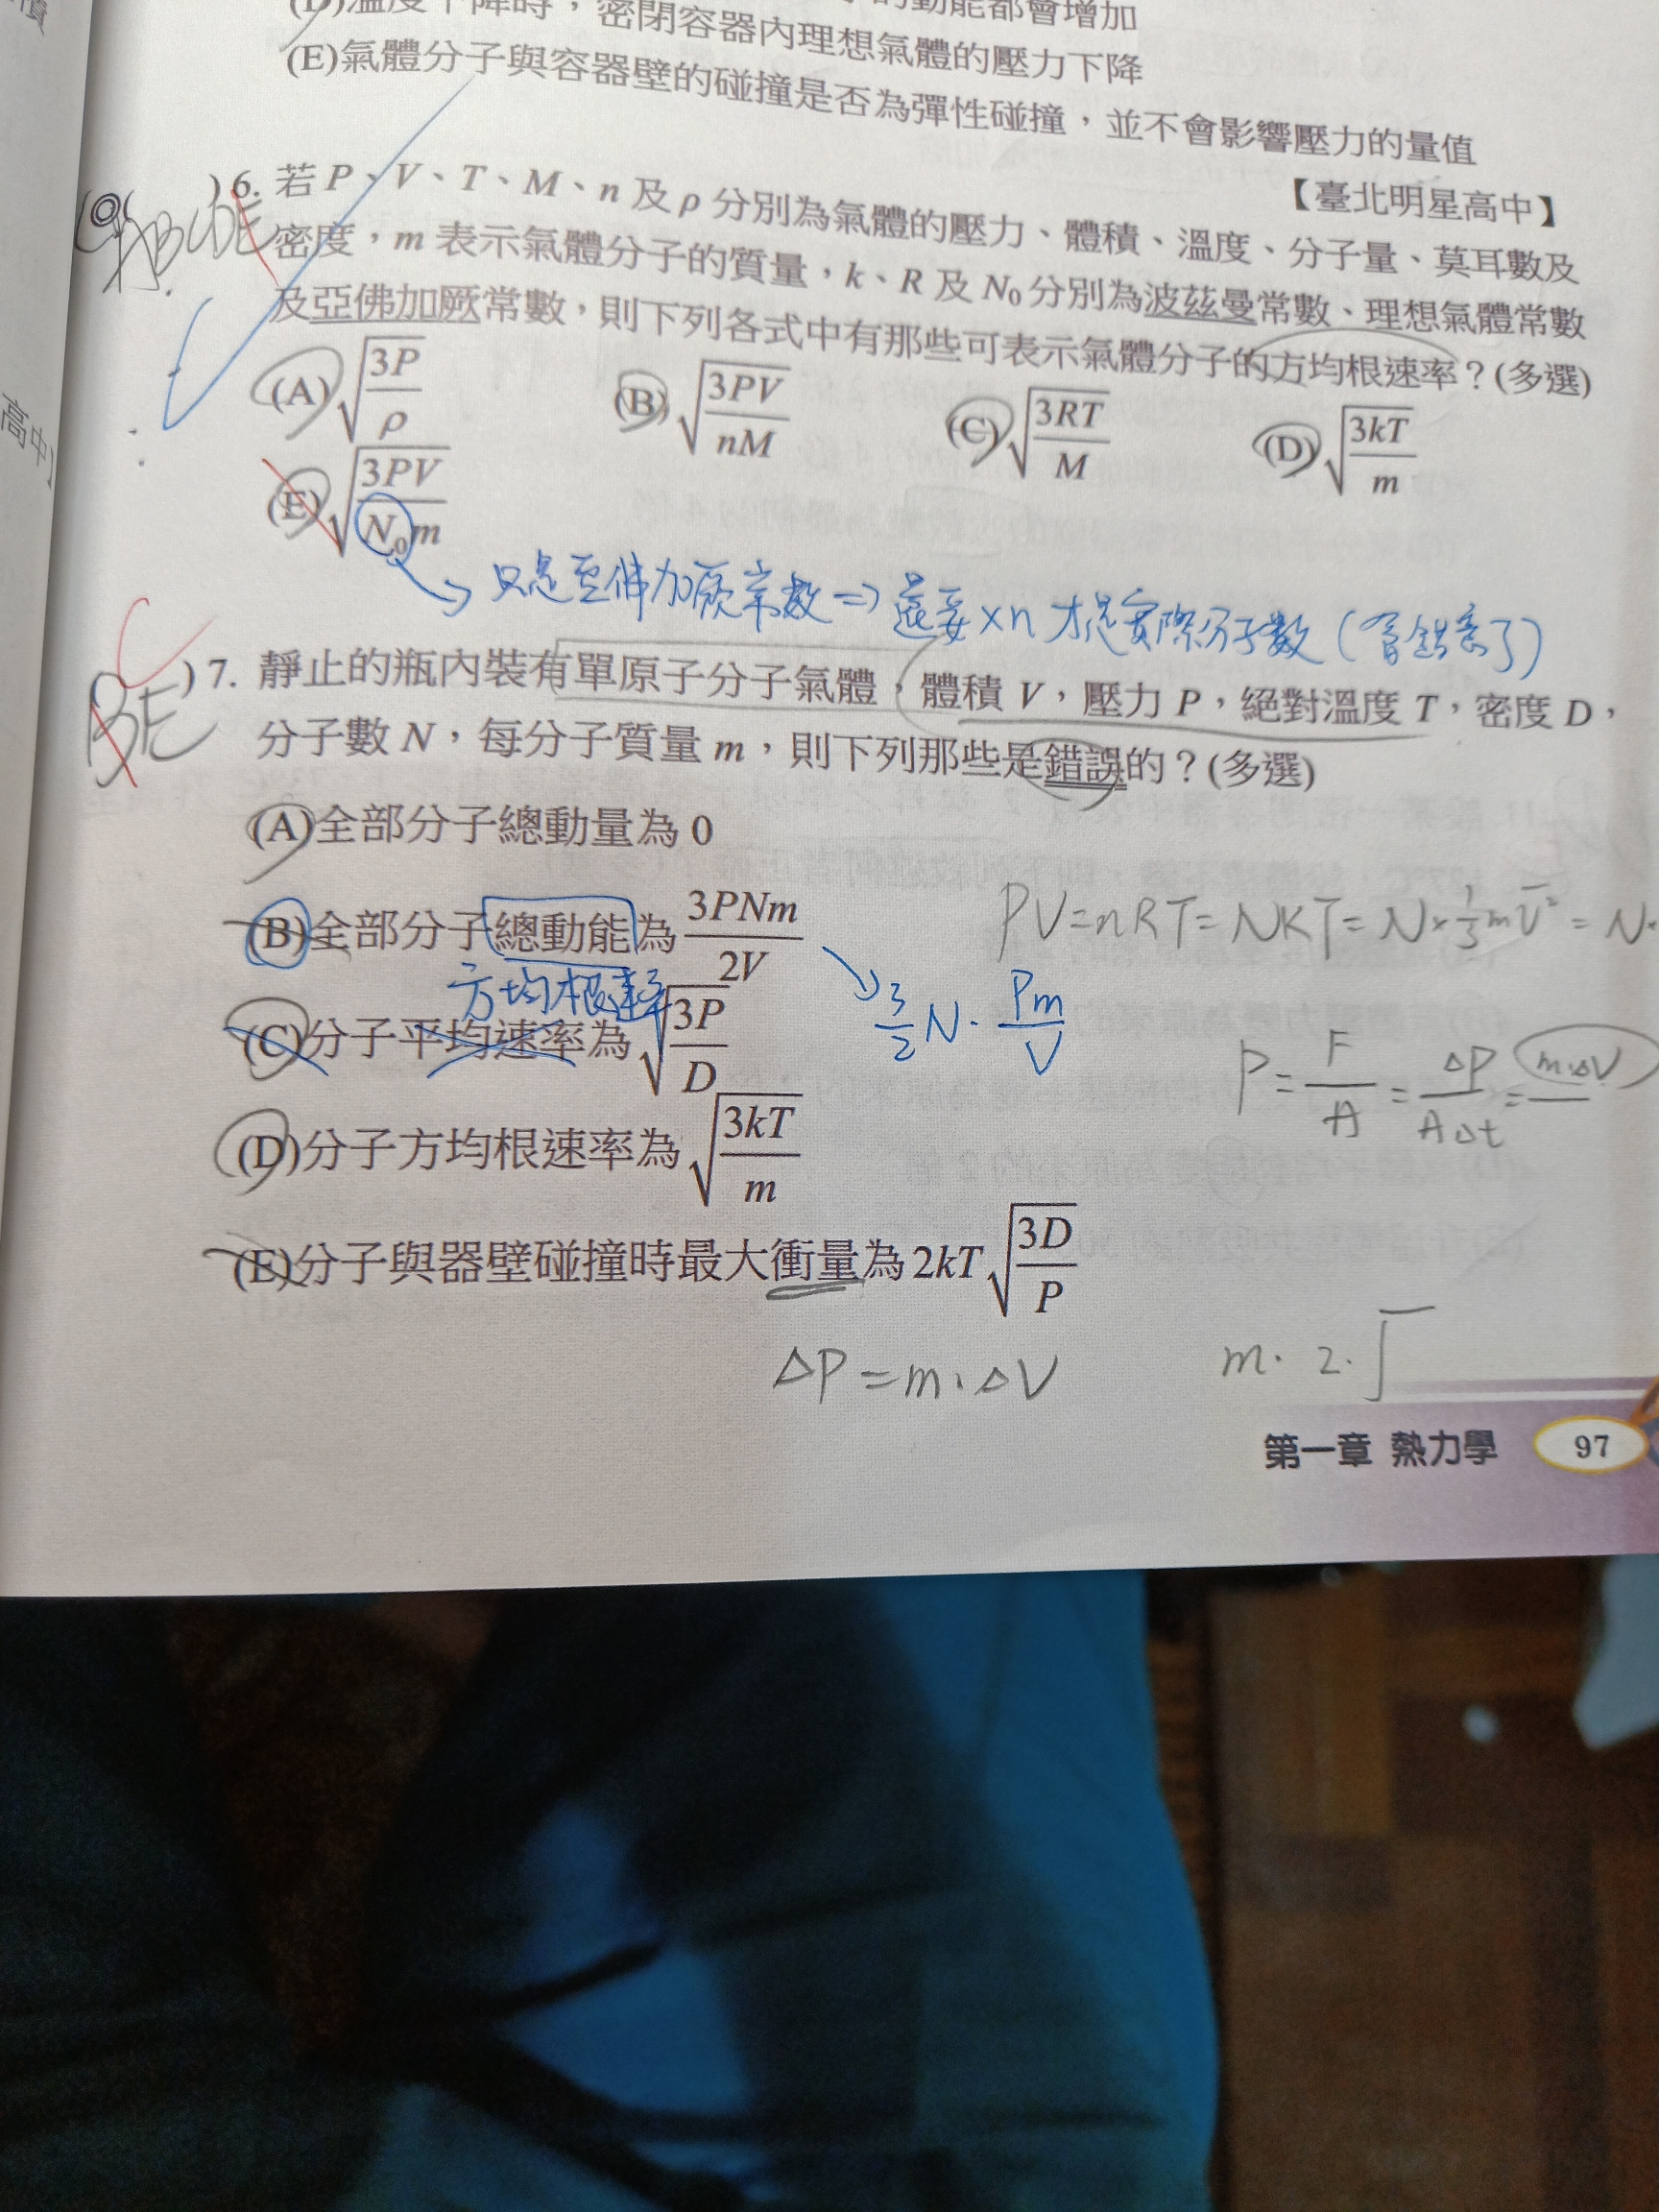 (D)溫度下降時，密閉容器內理想氣體的動能都會增加
(E)氣體分子與容器壁的碰撞是否為彈性碰撞，並不會影響壓力的量值
【臺北明星高中】
)6. 若 P、V、T、M、n 及 ρ 分別為氣體的壓力、體積、溫度、分子量、莫耳數及
密度，m 表示氣體分子的質量，k、R 及 N₀ 分別為波茲曼常數、理想氣體常數
及亞佛加厥常數，則下列各式中有那些可表示氣體分子的方均根速率？(多選)
(A) √(3P/ρ) (B) √(3PV/nM) (C) √(3RT/M) (D) √(3kT/m)
(E) √(3PV/N₀m)
只是亞佛加厥常數 => 還要 ×n 才是實際分子數 (會錯意了)
BE C
)7. 靜止的瓶內裝有單原子分子氣體，體積 V，壓力 P，絕對溫度 T，密度 D，
分子數 N，每分子質量 m，則下列那些是錯誤的？(多選)
(A)全部分子總動量為 0
(B)全部分子總動能為 3PNm/2V
PV=nRT=NKT=N×1/3 m v̄²=N·
3/2 N · Pm/V
方均根速率
(C)分子平均速率為 √(3P/D)
P=F/A=ΔP/AΔt=m·ΔV
(D)分子方均根速率為 √(3kT/m)
(E)分子與器壁碰撞時最大衝量為 2kT √(3D/P)
ΔP=m·ΔV
m·2·√
第一章 熱力學 97
高中】